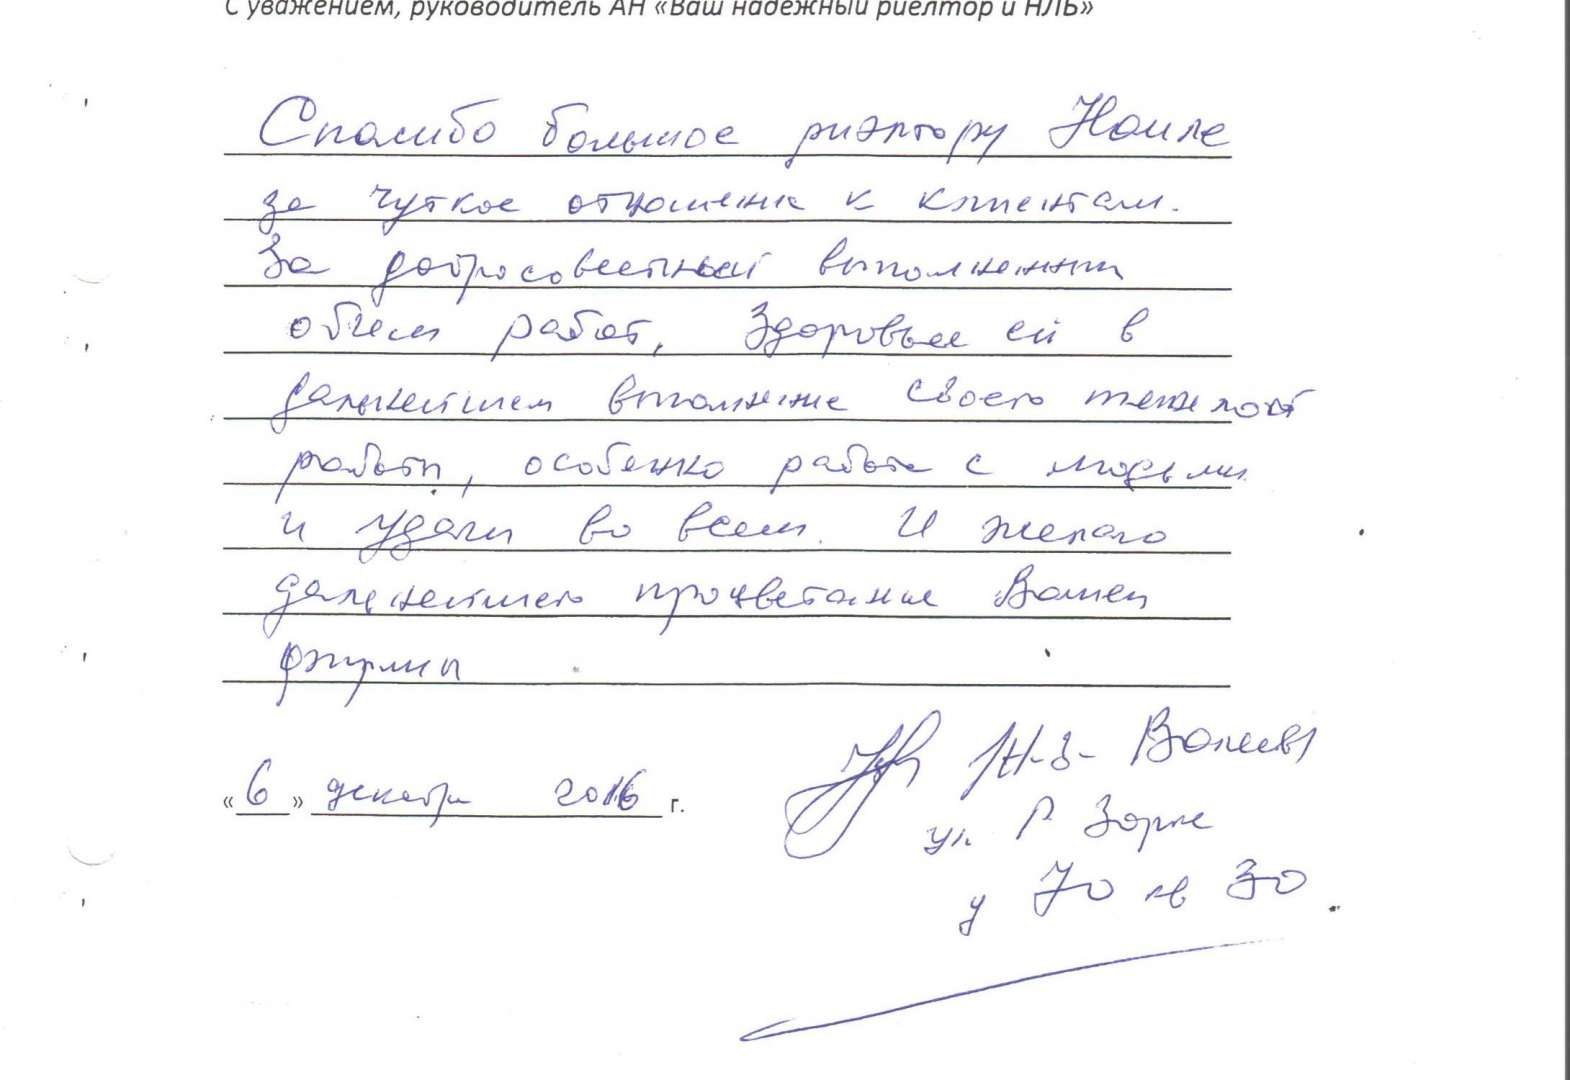 С уважением, руководитель АН «Ваш надежный риелтор и НЛБ»
Спасибо большое риэлтору Наиле
за чуткое отношение к клиентам.
За добросовестный выполнении
объем работ, Здоровье ей в
дальнейшем выполнение своего тяжелой
работы, особенно работа с людьми
и удачи во всем. И желаю
дальнейшего процветание Вашей
фирмы
«6» декабря 2016 г.
ул. Р Зорге
д 70 кв 30